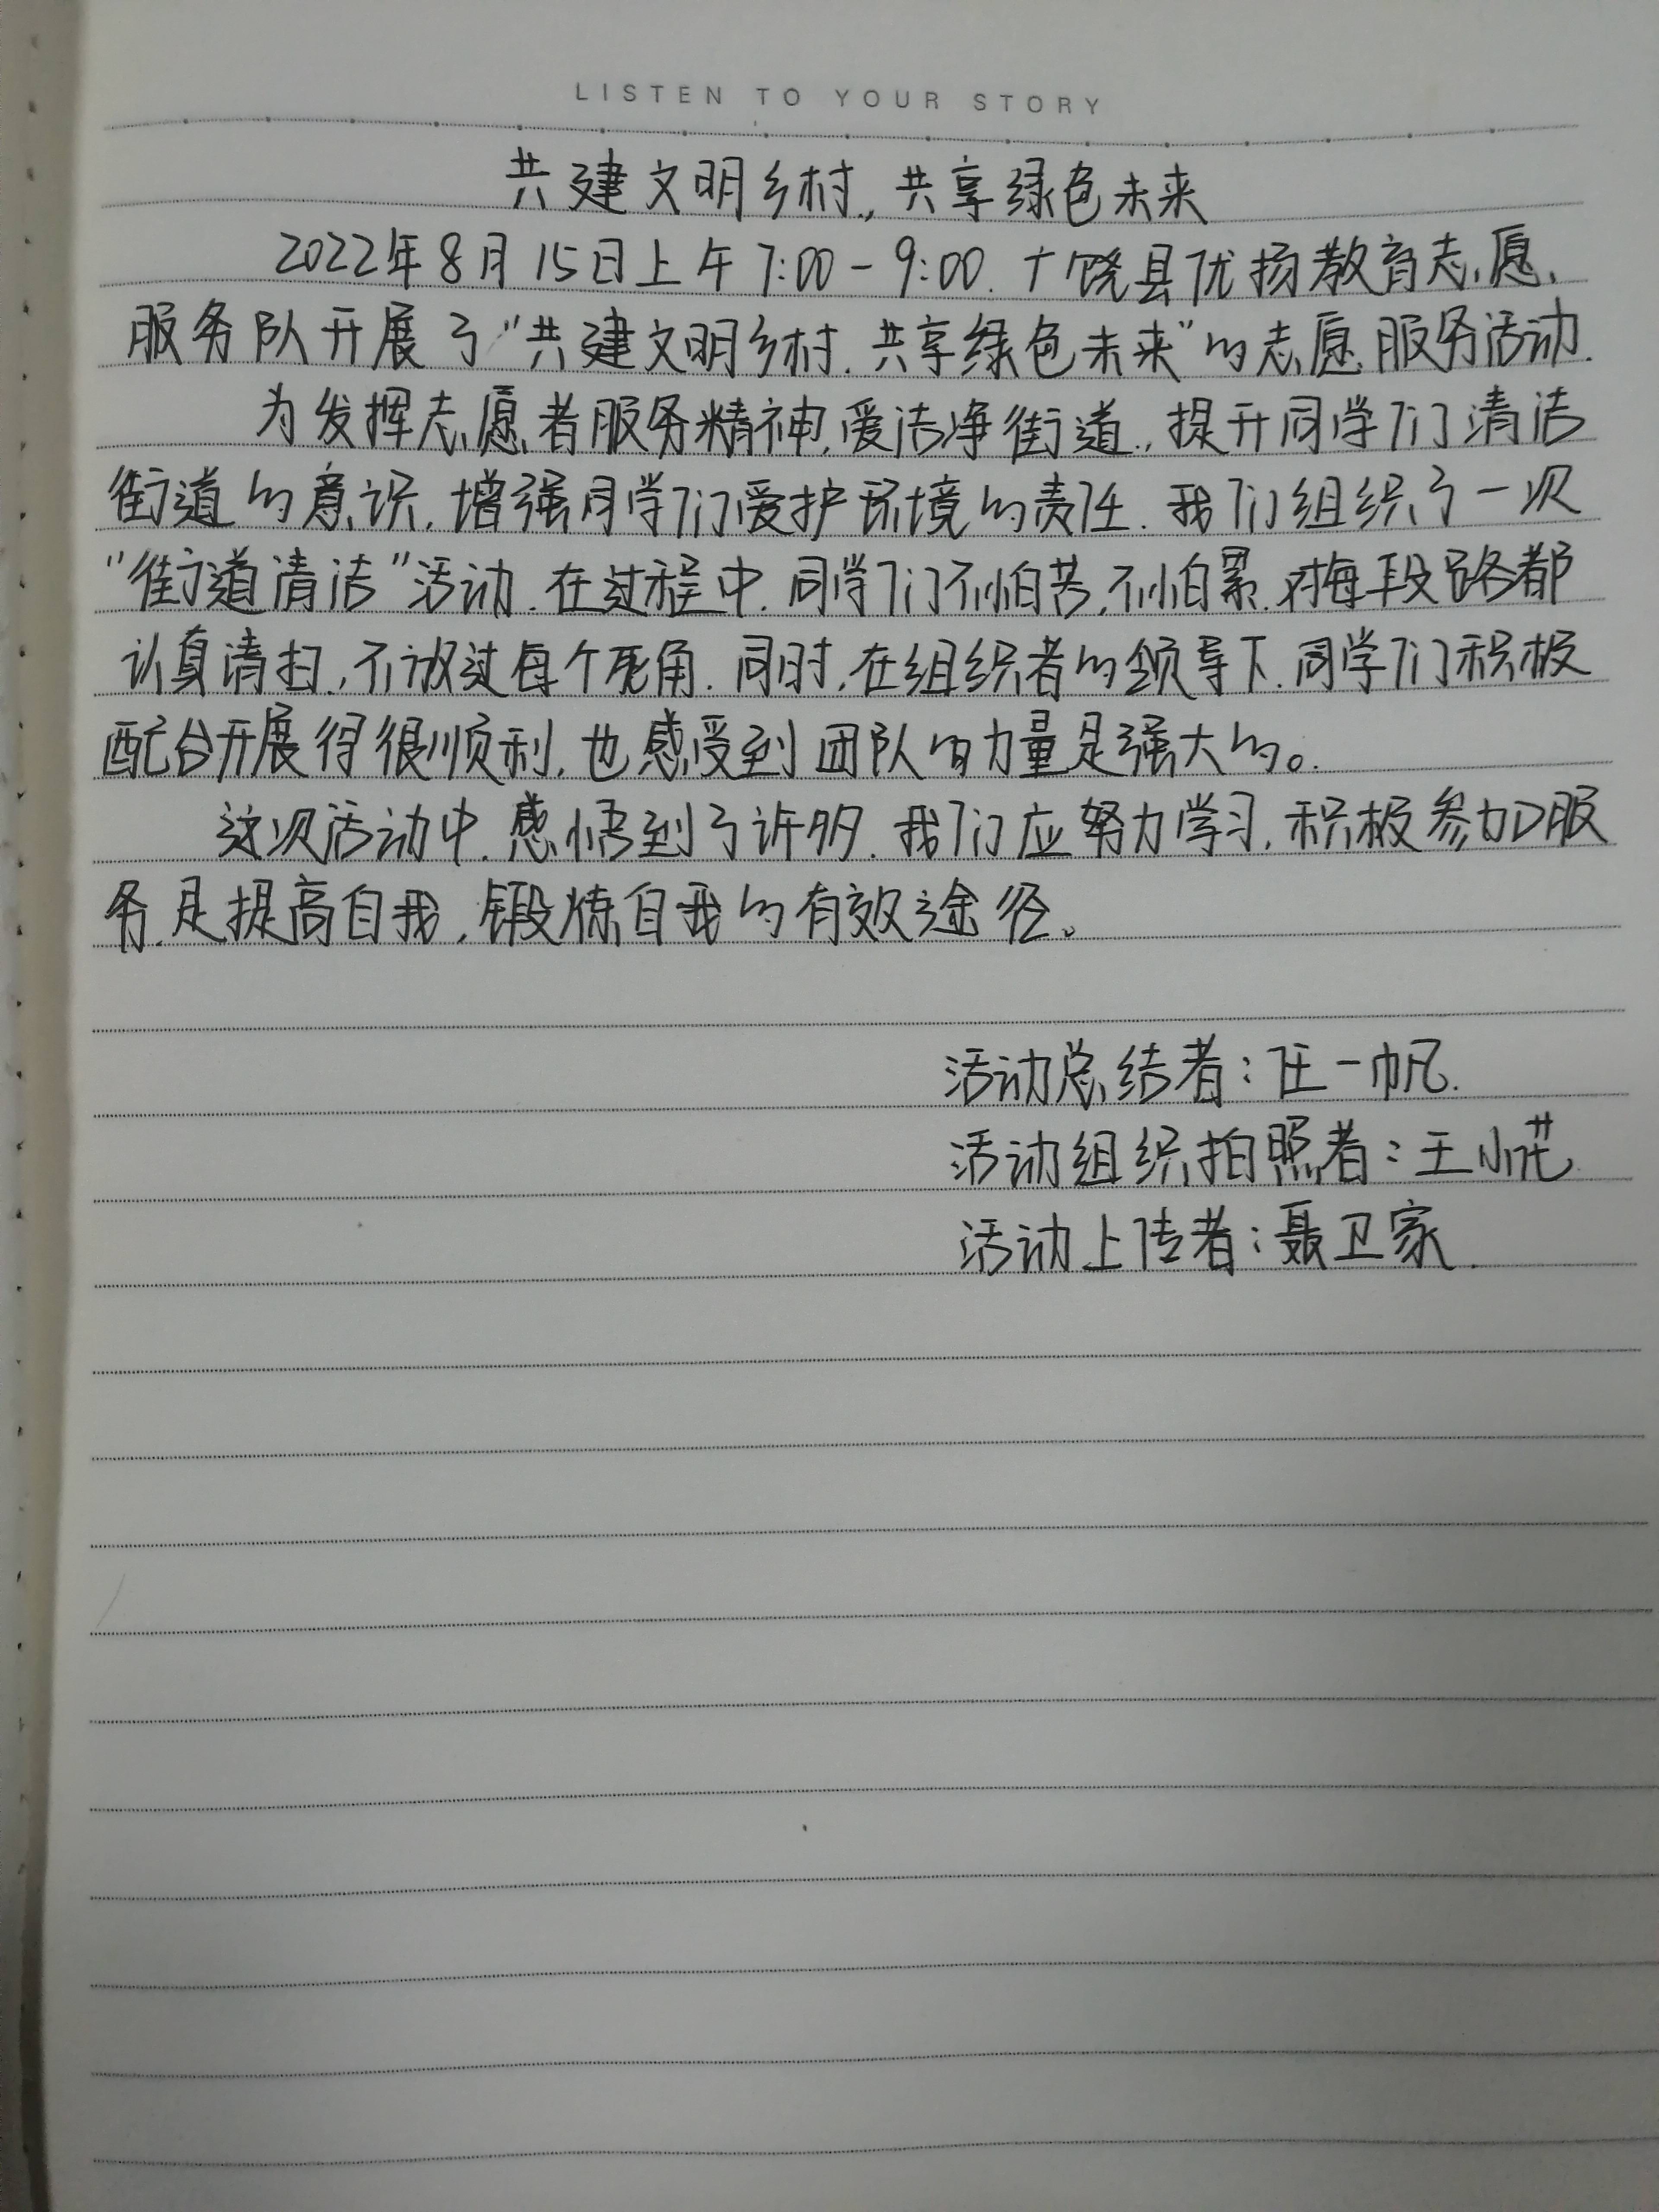 LISTEN TO YOUR STORY
共建文明乡村,共享绿色未来
2022年8月15日上午7:00-9:00.广饶县优扬教育志愿
服务队开展了"共建文明乡村.共享绿色未来"的志愿服务活动.
为发挥志愿者服务精神,爱洁净街道,提升同学们清洁
街道的意识,增强同学们爱护环境的责任.我们组织了一次
"街道清洁"活动.在过程中.同学们不怕苦,不怕累.对每段路都
认真清扫,不放过每个死角.同时,在组织者的领导下.同学们积极
配合开展得很顺利,也感受到团队的力量是强大的。
这次活动中.感悟到了许多.我们应努力学习,积极参加服
务.是提高自我,锻炼自我的有效途径。
活动总结者:任一帆.
活动组织拍照者:王小花
活动上传者:聂卫家.